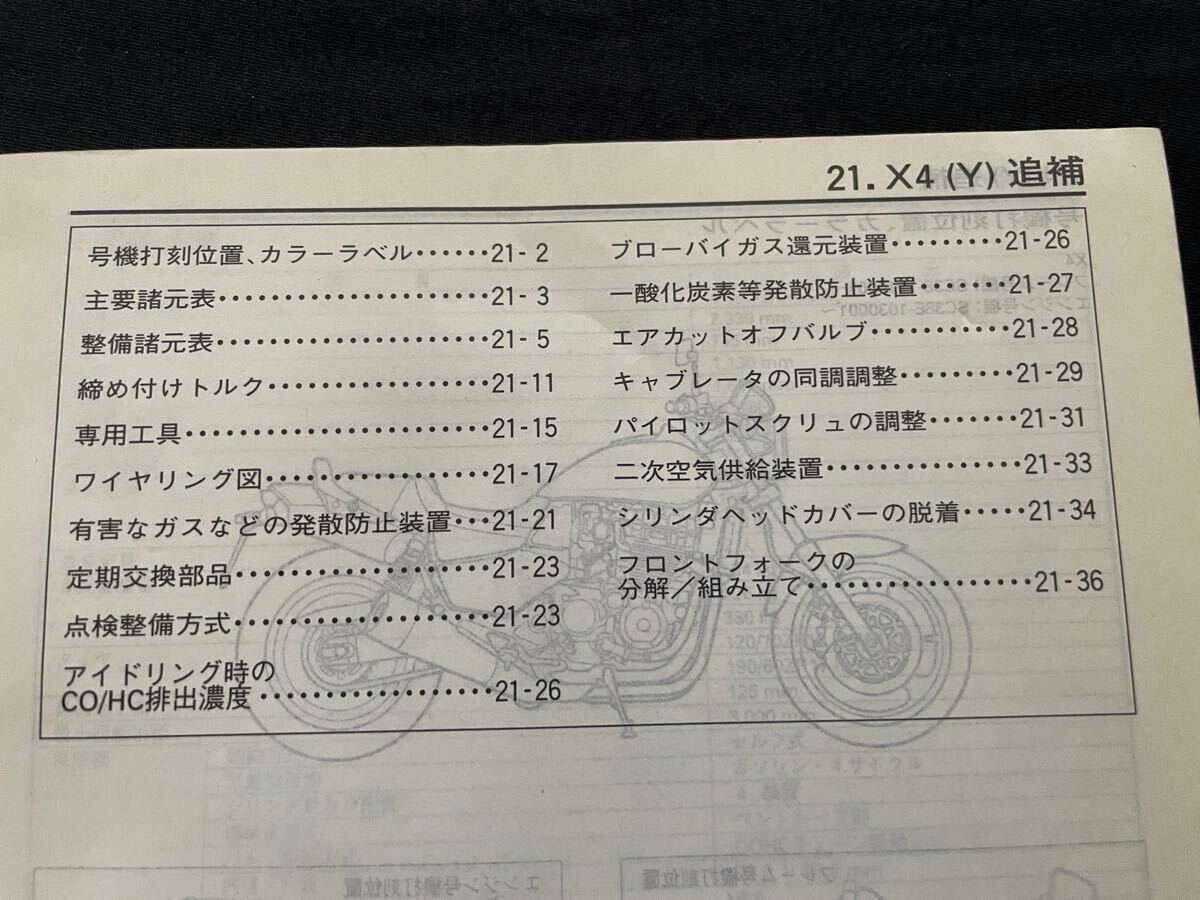 21. X4 (Y) 追補
号機打刻位置、カラーラベル······21- 2
主要諸元表····················21- 3
整備諸元表····················21- 5
締め付けトルク·················21-11
専用工具·······················21-15
ワイヤリング図·················21-17
有害なガスなどの発散防止装置···21-21
定期交換部品···················21-23
点検整備方式···················21-23
アイドリング時の
CO/HC排出濃度·················21-26
ブローバイガス還元装置·········21-26
一酸化炭素等発散防止装置·······21-27
エアカットオフバルブ···········21-28
キャブレータの同調調整·········21-29
パイロットスクリュの調整·······21-31
二次空気供給装置···············21-33
シリンダヘッドカバーの脱着·····21-34
フロントフォークの
分解／組み立て·················21-36